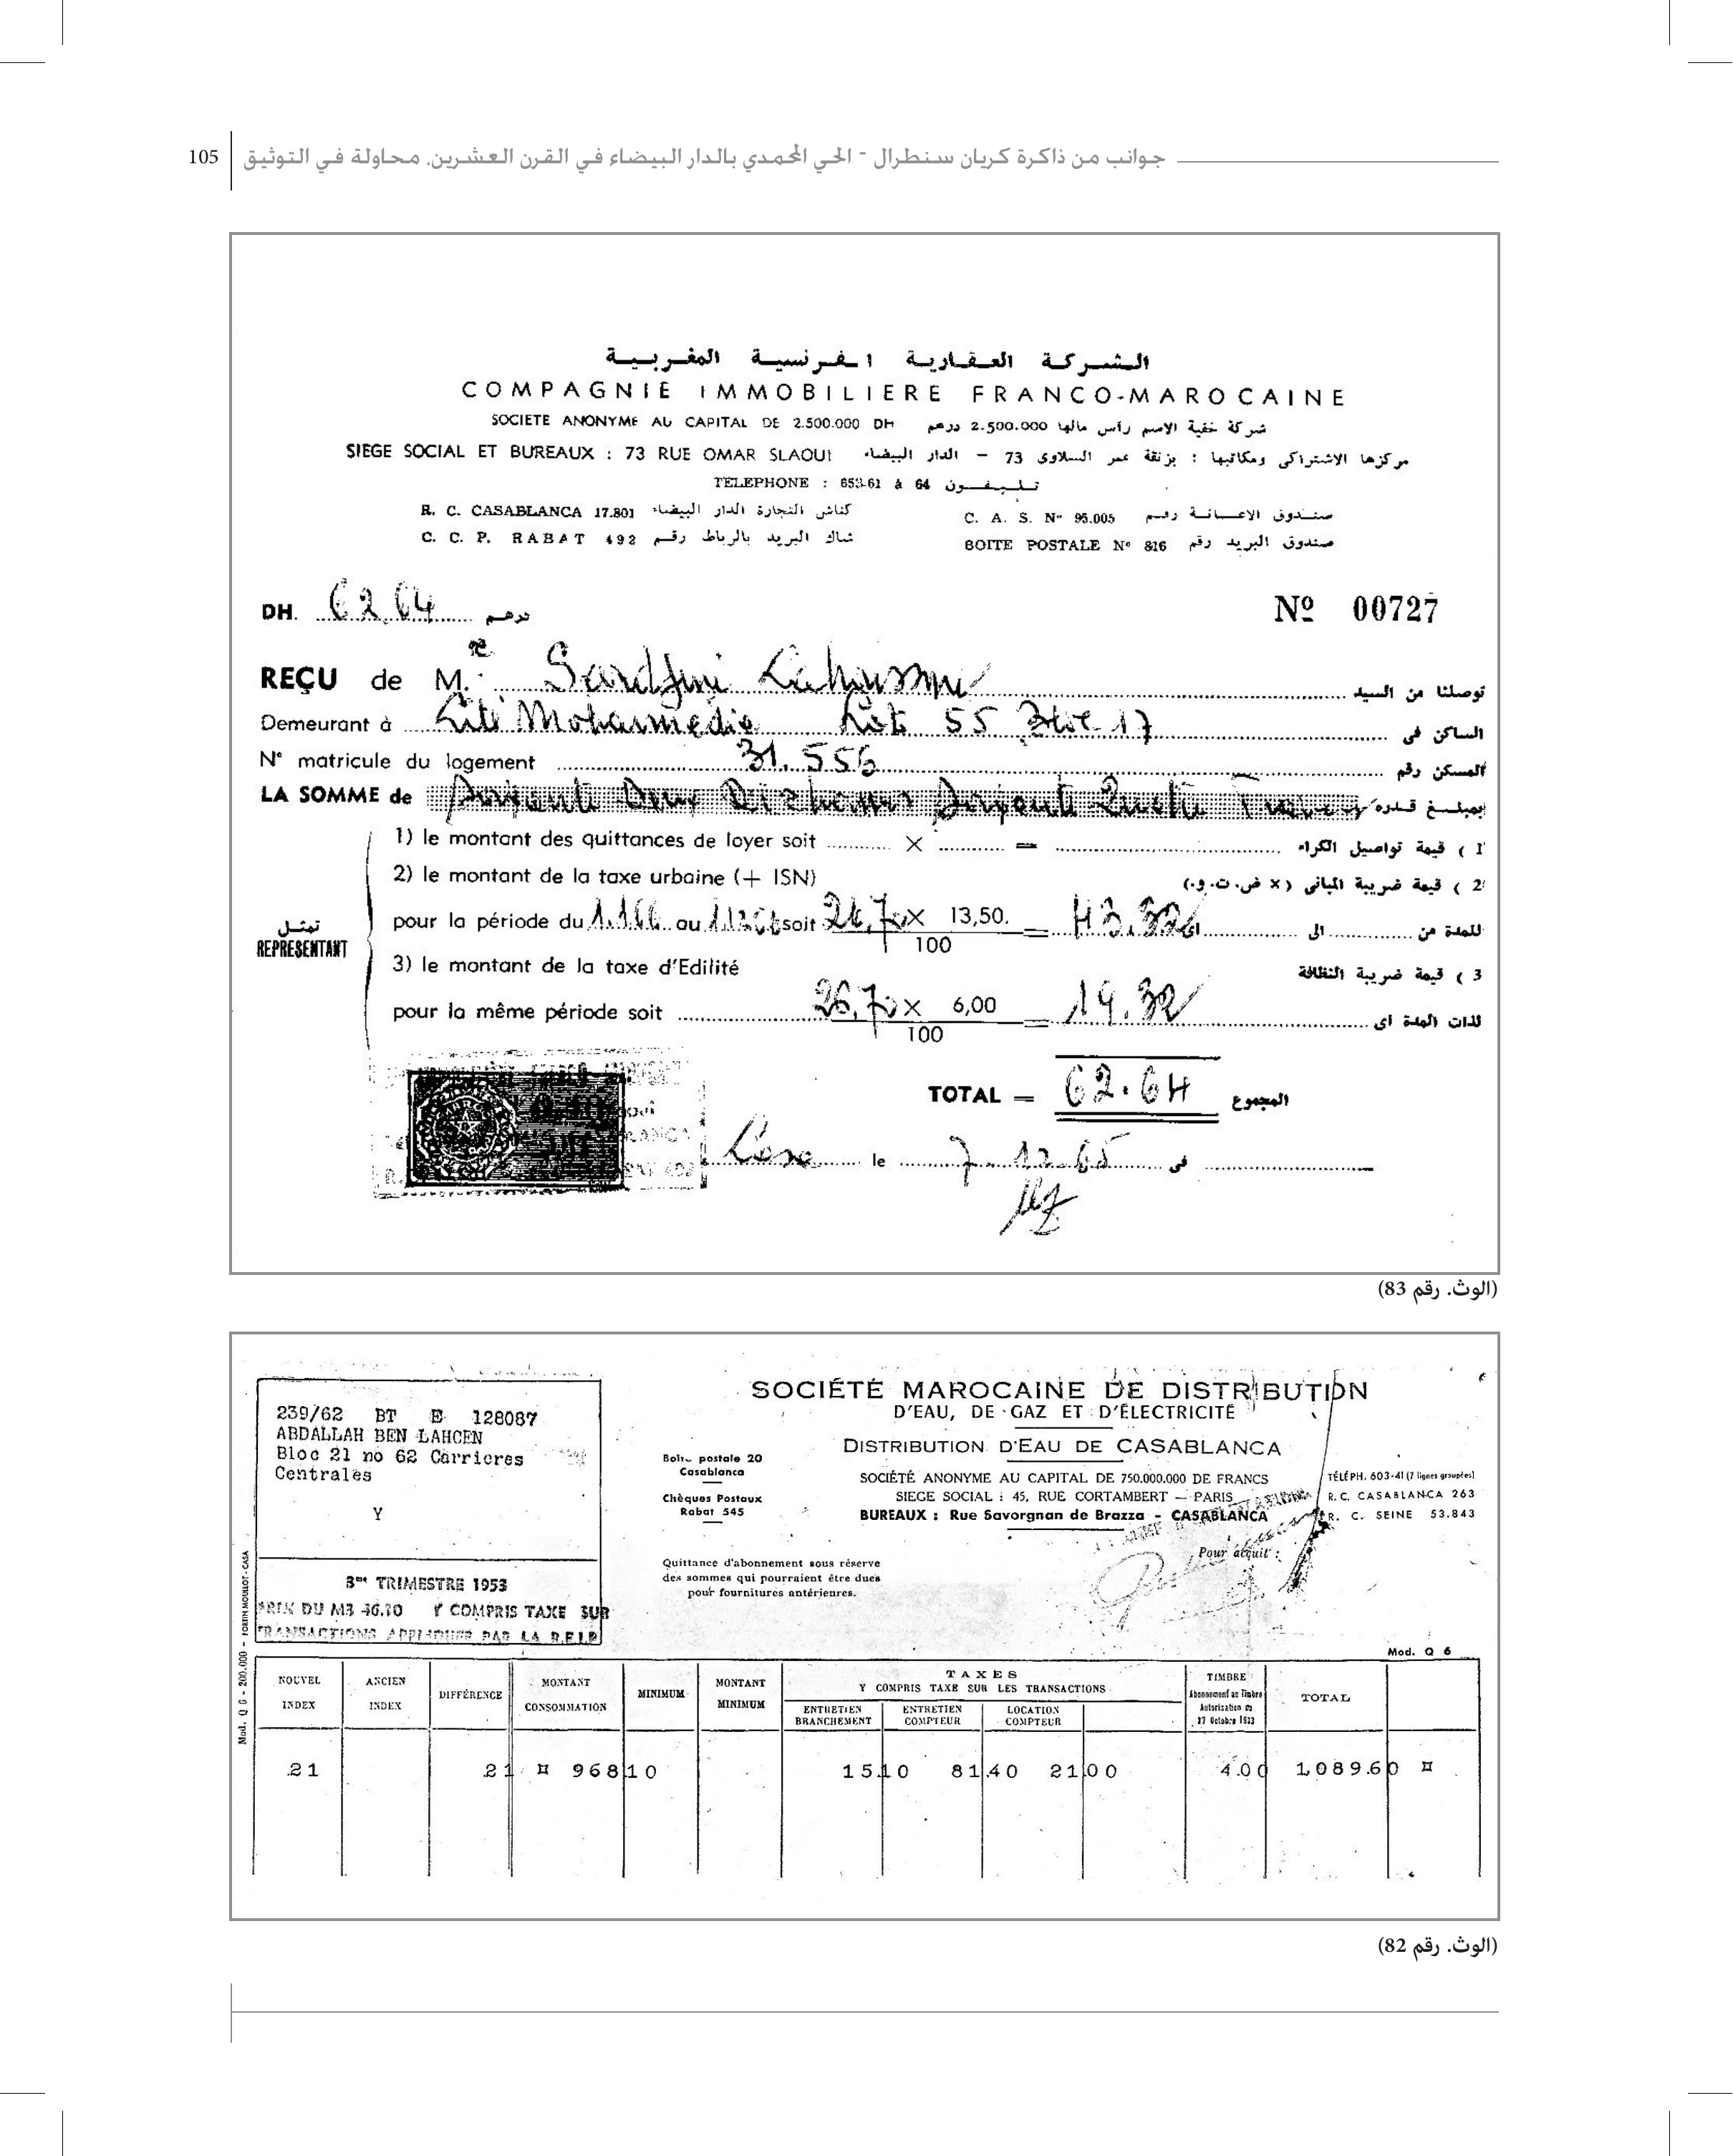 105
جوانب من ذاكرة كريان سنطرال - الحي المحمدي بالدار البيضاء في القرن العشرين. محاولة في التوثيق
الشركة العقارية الفرنسية المغربية
COMPAGNIE IMMOBILIERE FRANCO-MAROCAINE
SOCIETE ANONYME AU CAPITAL DE 2.500.000 DH شركة خفية الاسم رأس مالها 2.500.000 درهم
SIEGE SOCIAL ET BUREAUX : 73 RUE OMAR SLAOUI مركزها الاشتراكى ومكاتبها : بزنقة عمر السلاوى 73 - الدار البيضاء
TELEPHONE : 653-61 à 64 تليفون
R. C. CASABLANCA 17.801 كناش التجارة الدار البيضاء
C. A. S. Nº 95.005 صندوق الاعانة رقم
C. C. P. RABAT 492 شاك البريد بالرباط رقم
BOITE POSTALE Nº 816 صندوق البريد رقم
DH. 62.64 درهم
Nº 00727
REÇU de M. توصلنا من السيد
Demeurant à Cité Mohammedia Lot 55 17 الساكن فى
N° matricule du logement 31.556 المسكن رقم
LA SOMME de بمبلغ قدره
1) le montant des quittances de loyer soit × = 1 ) قيمة تواصيل الكراء
2) le montant de la taxe urbaine (+ ISN) 2 ) قيمة ضريبة المبانى (× ض.ت.و.)
pour la période du 1.1.66 au soit × 13,50. = 43.32 للمدة من الى اى
100
تمثل
REPRESENTANT
3) le montant de la taxe d'Edilité 3 ) قيمة ضريبة النظافة
pour la même période soit 26,70 × 6,00 = 19.32 لذات المدة اى
100
TOTAL = 62.64 المجموع
Casa le 7.12.65 فى
(الوث. رقم 83)
239/62 BT E 128087
ABDALLAH BEN LAHCEN
Bloc 21 no 62 Carrieres
Centrales
Y
3me TRIMESTRE 1953
PRIX DU M3 46.10 Y COMPRIS TAXE SUR
TRANSACTIONS APPLIQUEE PAR LA R.E.I.P
SOCIÉTÉ MAROCAINE DE DISTRIBUTION
D'EAU, DE GAZ ET D'ÉLECTRICITÉ
DISTRIBUTION D'EAU DE CASABLANCA
SOCIÉTÉ ANONYME AU CAPITAL DE 750.000.000 DE FRANCS
SIEGE SOCIAL : 45, RUE CORTAMBERT — PARIS
BUREAUX : Rue Savorgnan de Brazza - CASABLANCA
Boite postale 20
Casablanca
Chèques Postaux
Rabat 545
TÉLÉPH. 603-41 (7 lignes groupées)
R.C. CASABLANCA 263
R. C. SEINE 53.843
Quittance d'abonnement sous réserve
des sommes qui pourraient être dues
pour fournitures antérieures.
Pour acquit :
Mod. Q 6 - 200.000 - FORTIN MOULLOT - CASA
Mod. Q 6
NOUVEL INDEX
ANCIEN INDEX
DIFFÉRENCE
MONTANT CONSOMMATION
MINIMUM
MONTANT MINIMUM
TAXES
Y COMPRIS TAXE SUR LES TRANSACTIONS
ENTRETIEN BRANCHEMENT
ENTRETIEN COMPTEUR
LOCATION COMPTEUR
TIMBRE
Abonnement au Timbre
Autorisation du
17 Octobre 1933
TOTAL
21 21 ¤ 968 10 15 10 81.40 21 00 4.00 1,089.60 ¤
(الوث. رقم 82)